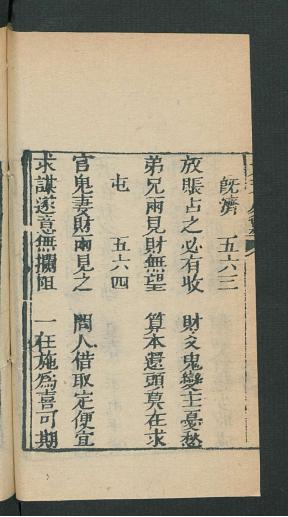 既濟　五六三
放賬占之必有收　財文鬼變主憂愁
弟兄兩見財無望　算本還頭莫在求
屯　五六四
官鬼妻財兩見之　問人借取定便宜
求謀遂意無攔阻　一在施為喜可期